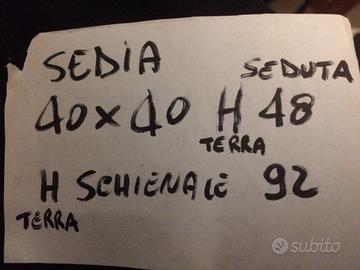 SEDIA SEDUTA
40×40 H 48
TERRA
H SCHIENALE 92
TERRA
subito